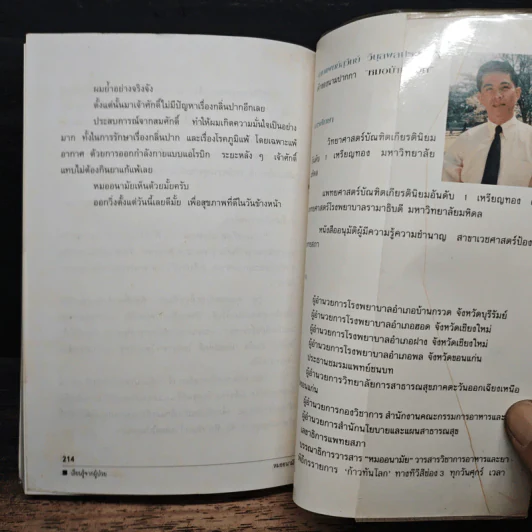 ผมย้ำอย่างจริงจัง
ตั้งแต่นั้นมาเจ้าศักดิ์ไม่มีปัญหาเรื่องกลิ่นปากอีกเลย
ประสบการณ์จากสมศักดิ์ ทำให้ผมเกิดความมั่นใจเป็นอย่าง
มาก ทั้งในการรักษาเรื่องกลิ่นปาก และเรื่องโรคภูมิแพ้ โดยเฉพาะแพ้
อากาศ ด้วยการออกกำลังกายแบบแอโรบิก ระยะหลัง ๆ เจ้าศักดิ์
แทบไม่ต้องกินยาแก้แพ้เลย
หมออนามัยเห็นด้วยมั้ยครับ
ออกวิ่งตั้งแต่วันนี้เลยดีมั้ย เพื่อสุขภาพที่ดีในวันข้างหน้า
214
■ เรียนรู้จากผู้ป่วย
วิทยาศาสตร์บัณฑิตเกียรตินิยม
1 เหรียญทอง มหาวิทยาลัย
แพทยศาสตร์บัณฑิตเกียรตินิยมอันดับ 1 เหรียญทอง
ศาสตร์โรงพยาบาลรามาธิบดี มหาวิทยาลัยมหิดล
หนังสืออนุมัติผู้มีความรู้ความชำนาญ สาขาเวชศาสตร์ป้อง
ผู้อำนวยการโรงพยาบาลอำเภอบ้านกรวด จังหวัดบุรีรัมย์
ผู้อำนวยการโรงพยาบาลอำเภอฮอด จังหวัดเชียงใหม่
ผู้อำนวยการโรงพยาบาลอำเภอฝาง จังหวัดเชียงใหม่
ผู้อำนวยการโรงพยาบาลอำเภอพล จังหวัดขอนแก่น
ประธานชมรมแพทย์ชนบท
ผู้อำนวยการวิทยาลัยการสาธารณสุขภาคตะวันออกเฉียงเหนือ
ผู้อำนวยการกองวิชาการ สำนักงานคณะกรรมการอาหารและ
ผู้อำนวยการสำนักนโยบายและแผนสาธารณสุข
เลขาธิการแพทยสภา
บรรณาธิการวารสาร "หมออนามัย" วารสารวิชาการอาหารและยา
พิธีกรรายการ 'ก้าวทันโลก' ทางทีวีสีช่อง 3 ทุกวันศุกร์ เวลา